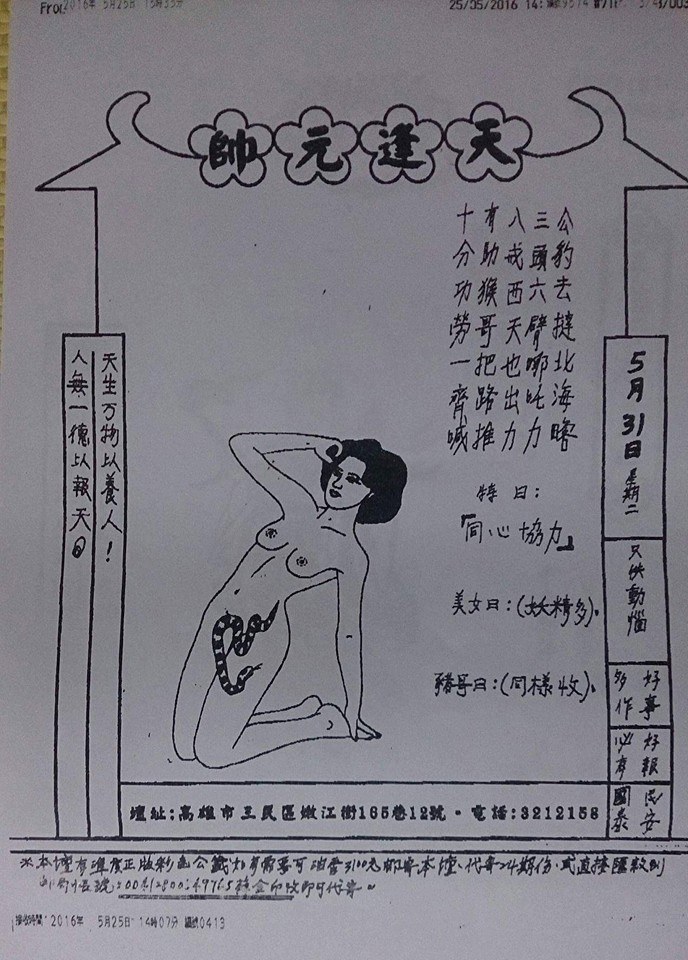 2016年 5月25日 15時33分
25/05/2016 14:
天蓬元帥
公豹去撻北海喀
三頭六臂哪吒力
八戒西天也出力
有助猴哥把路推
十分功勞一齊喊
特曰：
「同心協力」
美女曰：(妖精多)。
豬哥曰：(同樣收)。
5月31日星期二
只供動惱
好事多作
好報必有
民安國泰
天生万物以養人！
人無一德以報天
壇址：高雄市三民區嫩江街165巷12號・電話：3212158
接收時間：2016年 5月25日 14時07分 編號0413